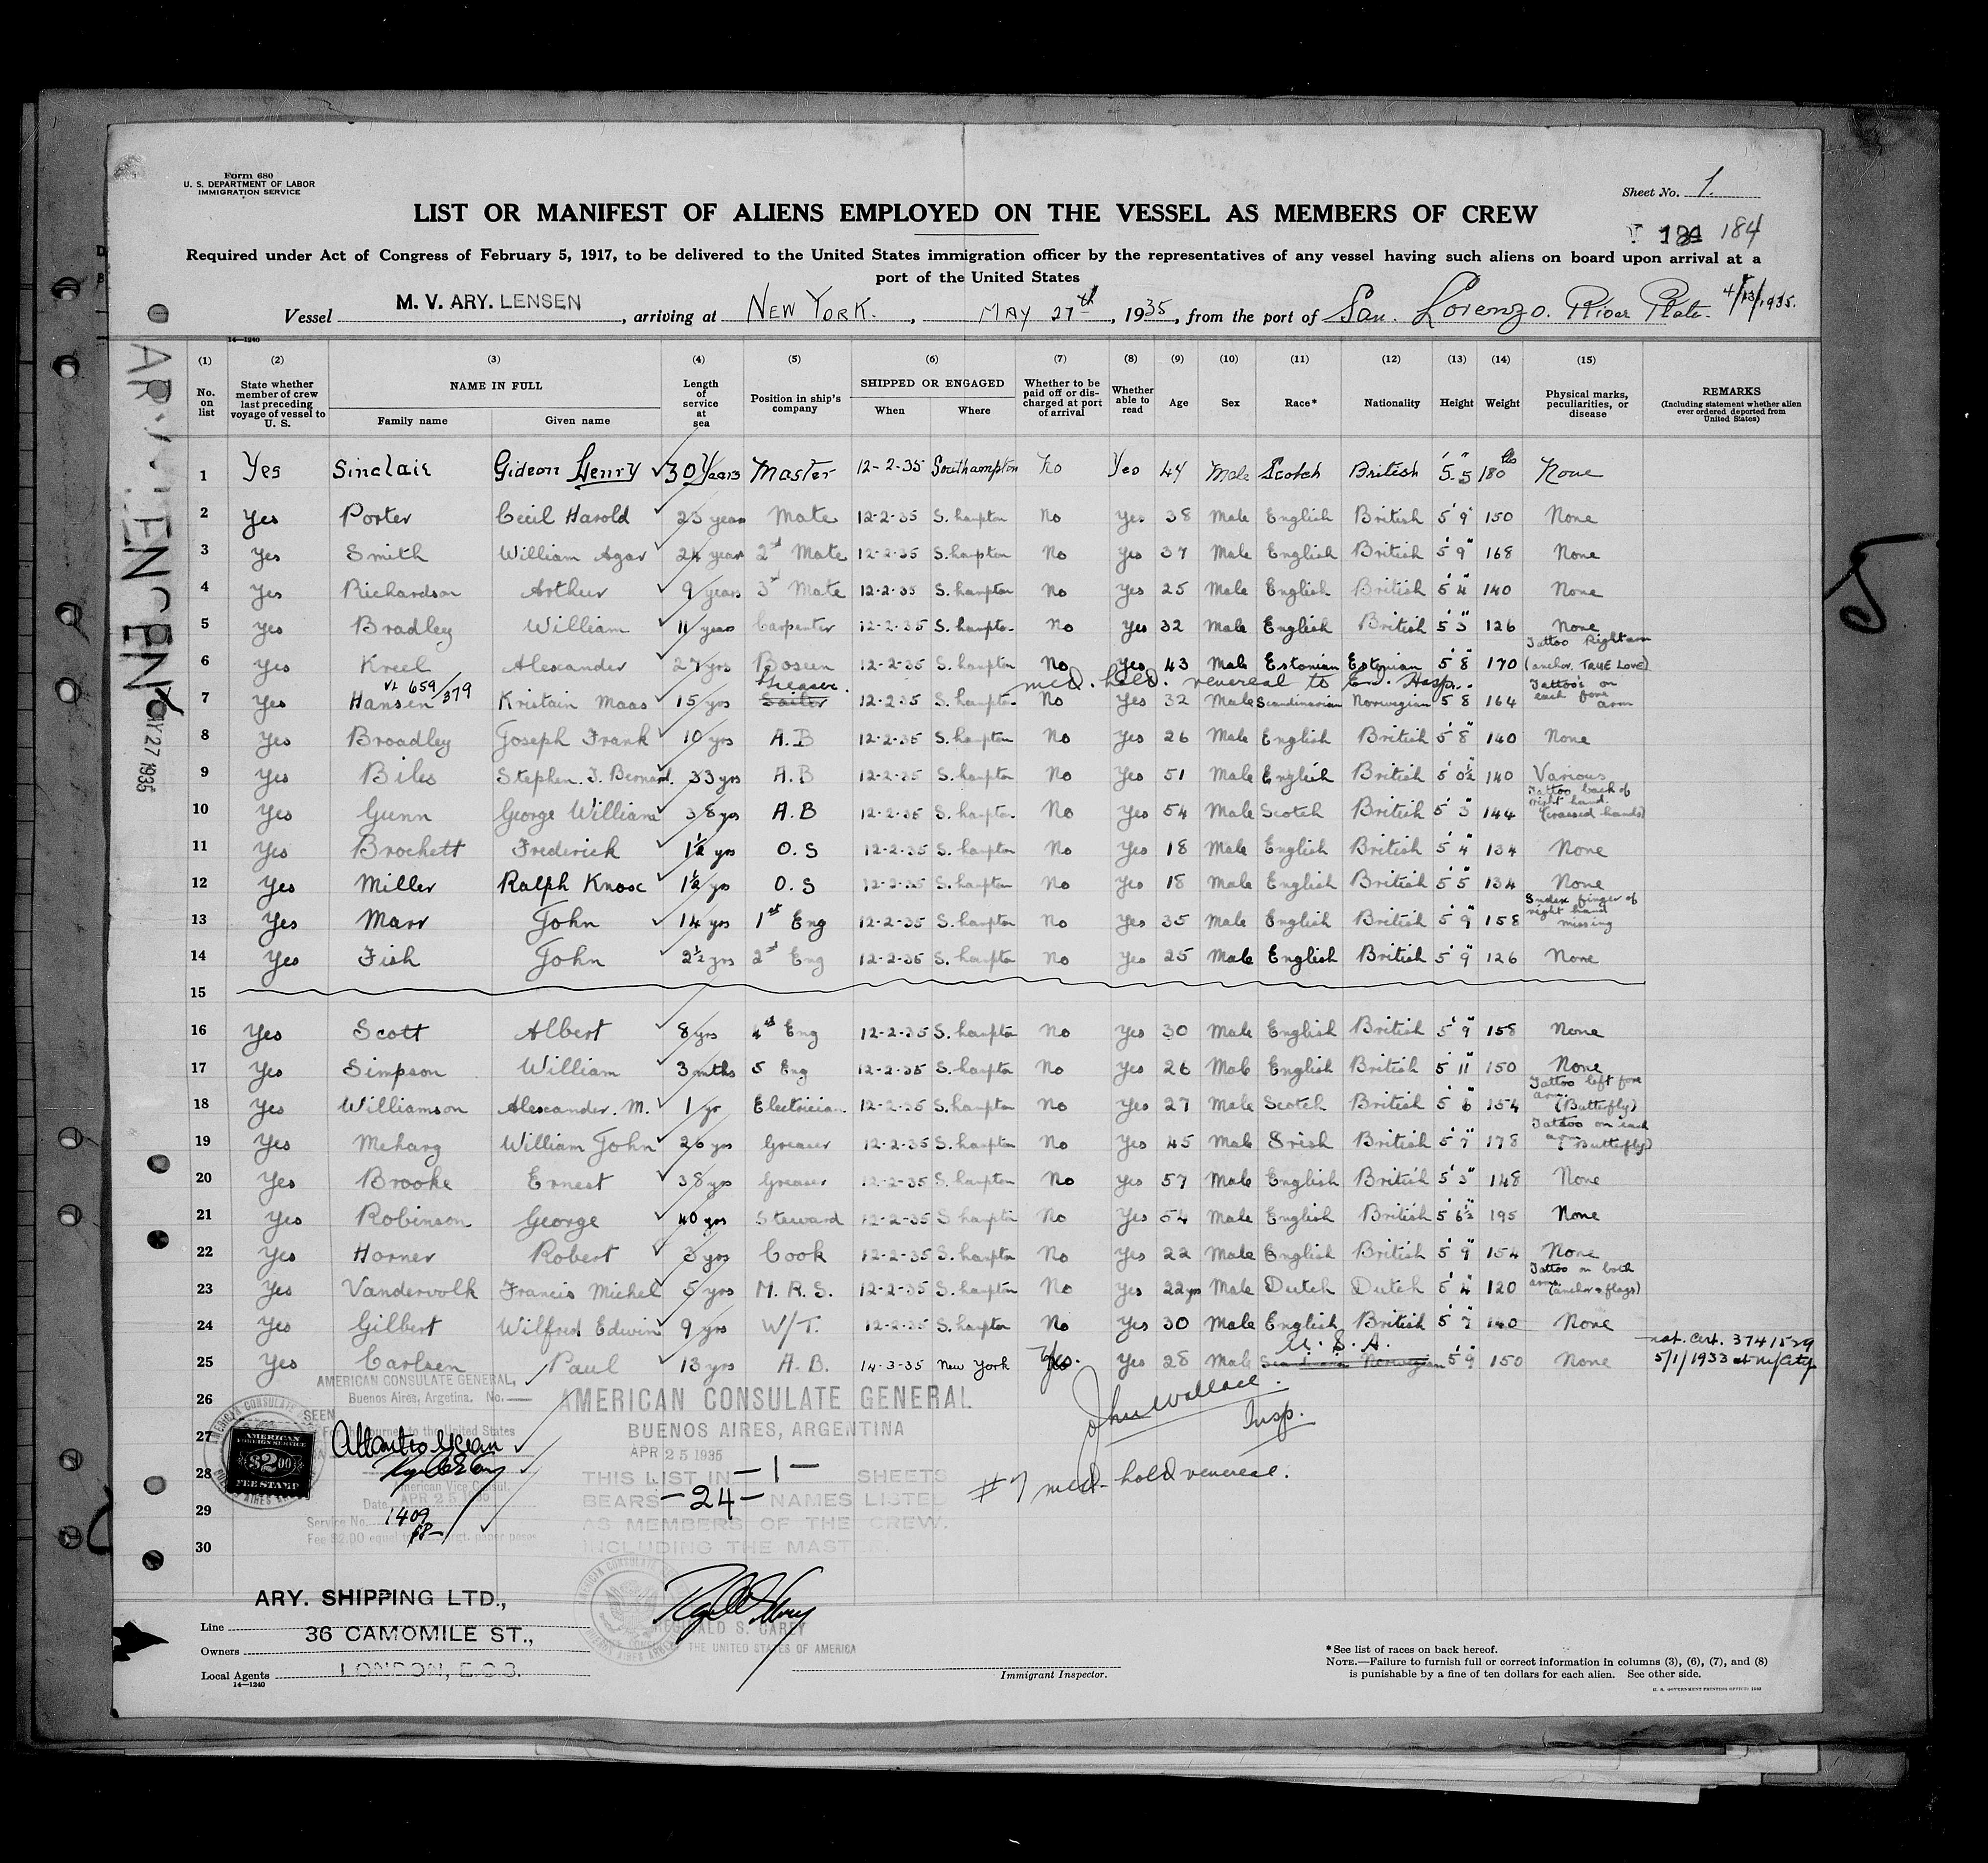 Form 680
U. S. DEPARTMENT OF LABOR
IMMIGRATION SERVICE
Sheet No. 1.
LIST OR MANIFEST OF ALIENS EMPLOYED ON THE VESSEL AS MEMBERS OF CREW
184 184
Required under Act of Congress of February 5, 1917, to be delivered to the United States immigration officer by the representatives of any vessel having such aliens on board upon arrival at a
port of the United States
Vessel M. V. ARY. LENSEN, arriving at NEW YORK., MAY 27th, 1935, from the port of San. Lorenzo. River Plate. 4/23/1935.
14—1240
(1) (2) (3) (4) (5) (6) (7) (8) (9) (10) (11) (12) (13) (14) (15)
No. on list State whether member of crew last preceding voyage of vessel to U. S. NAME IN FULL Family name Given name Length of service at sea Position in ship's company SHIPPED OR ENGAGED When Where Whether to be paid off or discharged at port of arrival Whether able to read Age Sex Race* Nationality Height Weight Physical marks, peculiarities, or disease REMARKS (Including statement whether alien ever ordered deported from United States)
1 Yes Sinclair Gideon Henry 30 Years Master 12-2-35 Southampton No Yes 44 Male Scotch British 5' 5" 180 lbs None
2 Yes Porter Cecil Harold 23 years Mate 12-2-35 S. hampton No Yes 38 Male English British 5' 9" 150 None
3 Yes Smith William Agar 24 years 2nd Mate 12-2-35 S. hampton No Yes 37 Male English British 5' 9" 168 None
4 Yes Richardson Arthur 9 years 3rd Mate 12-2-35 S. hampton No Yes 25 Male English British 5' 4" 140 None
5 Yes Bradley William 11 years Carpenter 12-2-35 S. hampton No Yes 32 Male English British 5' 5" 126 None
6 Yes Kreel Alexander 27 yrs Bosun 12-2-35 S. hampton No Yes 43 Male Estonian Estonian 5' 8" 170 Tattoo Right arm (anchor, TRUE LOVE)
VL 659/379 Greaser. med. hold. venereal to Hosp.
7 Yes Hansen Kristain Maas 15 yrs Sailor 12-2-35 S. hampton No Yes 32 Male Scandinavian Norwegian 5' 8" 164 Tattoo's on each fore arm
8 Yes Broadley Joseph Frank 10 yrs A.B 12-2-35 S. hampton No Yes 26 Male English British 5' 8" 140 None
9 Yes Biles Stephen. J. Bernard. 33 yrs A.B 12-2-35 S. hampton No Yes 51 Male English British 5' 0½" 140 Various
10 Yes Gunn George William 38 yrs A.B 12-2-35 S. hampton No Yes 54 Male Scotch British 5' 3" 144 Tattoo back of right hand. (crossed hands)
11 Yes Brockett Frederick 1½ yrs O.S 12-2-35 S. hampton No Yes 18 Male English British 5' 4" 134 None
12 Yes Miller Ralph Knox 1½ yrs O.S 12-2-35 S. hampton No Yes 18 Male English British 5' 5" 134 None
13 Yes Marr John 14 yrs 1st Eng 12-2-35 S. hampton No Yes 35 Male English British 5' 9" 158 Index finger of right hand missing
14 Yes Fish John 2½ yrs 2nd Eng 12-2-35 S. hampton No Yes 25 Male English British 5' 9" 126 None
15
16 Yes Scott Albert 8 yrs 4th Eng 12-2-35 S. hampton No Yes 30 Male English British 5' 9" 158 None
17 Yes Simpson William 3 mths 5 Eng 12-2-35 S. hampton No Yes 26 Male English British 5' 11" 150 None
18 Yes Williamson Alexander. M. 1 yr Electrician 12-2-35 S. hampton No Yes 27 Male Scotch British 5' 6" 154 Tattoo left fore arm. (Butterfly)
19 Yes Meharg William John 26 yrs Greaser 12-2-35 S. hampton No Yes 45 Male Irish British 5' 7" 178 Tattoo on each arm (Butterfly)
20 Yes Brooke Ernest 38 yrs Greaser 12-2-35 S. hampton No Yes 57 Male English British 5' 3" 148 None
21 Yes Robinson George 40 yrs Steward 12-2-35 S hampton No Yes 54 Male English British 5' 6½" 195 None
22 Yes Horner Robert 3 yrs Cook 12-2-35 S. hampton No Yes 22 Male English British 5' 9" 154 None
23 Yes Vandervolk Francis Michel 5 yrs M. R. S. 12-2-35 S. hampton No Yes 22 yrs Male Dutch Dutch 5' 4" 120 Tattoo on both arms (anchor & flags)
24 Yes Gilbert Wilfred Edwin 9 yrs W/T. 12-2-35 S. hampton No Yes 30 Male English British 5' 7" 140 None
U. S. A. nat. Cert. 3741529
25 Yes Carlsen Paul 13 yrs A. B. 14-3-35 New York Yes. Yes 28 Male Norwegian 5' 9" 150 None 5/1/1933 at NY City
26
27
28
29
30
AMERICAN CONSULATE GENERAL,
Buenos Aires, Argetina. No.
SEEN
For the journey to the United States
Atlantic Ocean
American Vice Consul.
Date APR 25 1935
Service No. 1409
Fee $2.00 equal to
AMERICAN
FOREIGN SERVICE
$2.00
FEE STAMP
AMERICAN CONSULATE GENERAL
BUENOS AIRES, ARGENTINA
APR 25 1935
THIS LIST IN —1— SHEETS
BEARS —24— NAMES LISTED
AS MEMBERS OF THE CREW.
INCLUDING THE MASTER.
John Wallace.
Insp.
#7 med. hold venereal.
ARY. SHIPPING LTD.,
Line
36 CAMOMILE ST.,
Owners
Local Agents LONDON, E.C.3.
14—1240
REGINALD S. CAREY
THE UNITED STATES OF AMERICA
Immigrant Inspector.
*See list of races on back hereof.
NOTE.—Failure to furnish full or correct information in columns (3), (6), (7), and (8)
is punishable by a fine of ten dollars for each alien. See other side.
MAY 27 1935